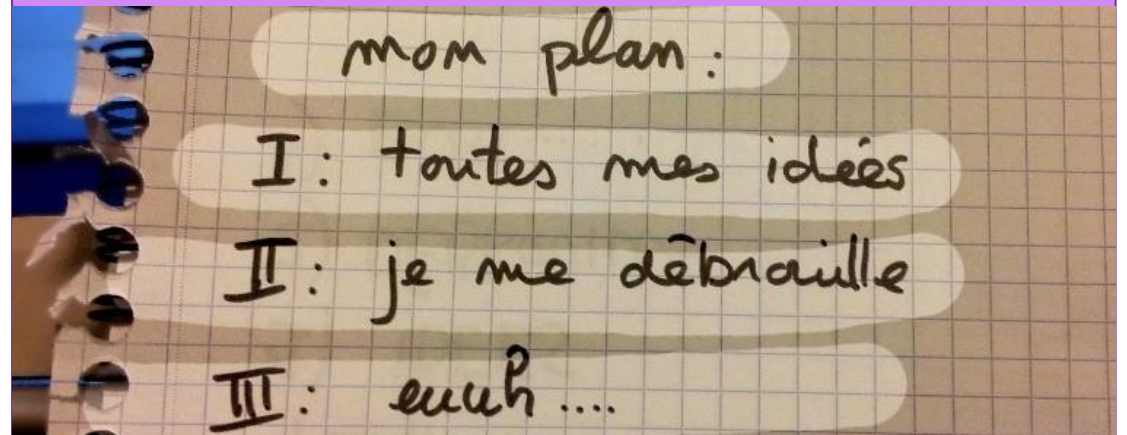 mon plan :
I : toutes mes idées
II : je me débrouille
III : euuh ....